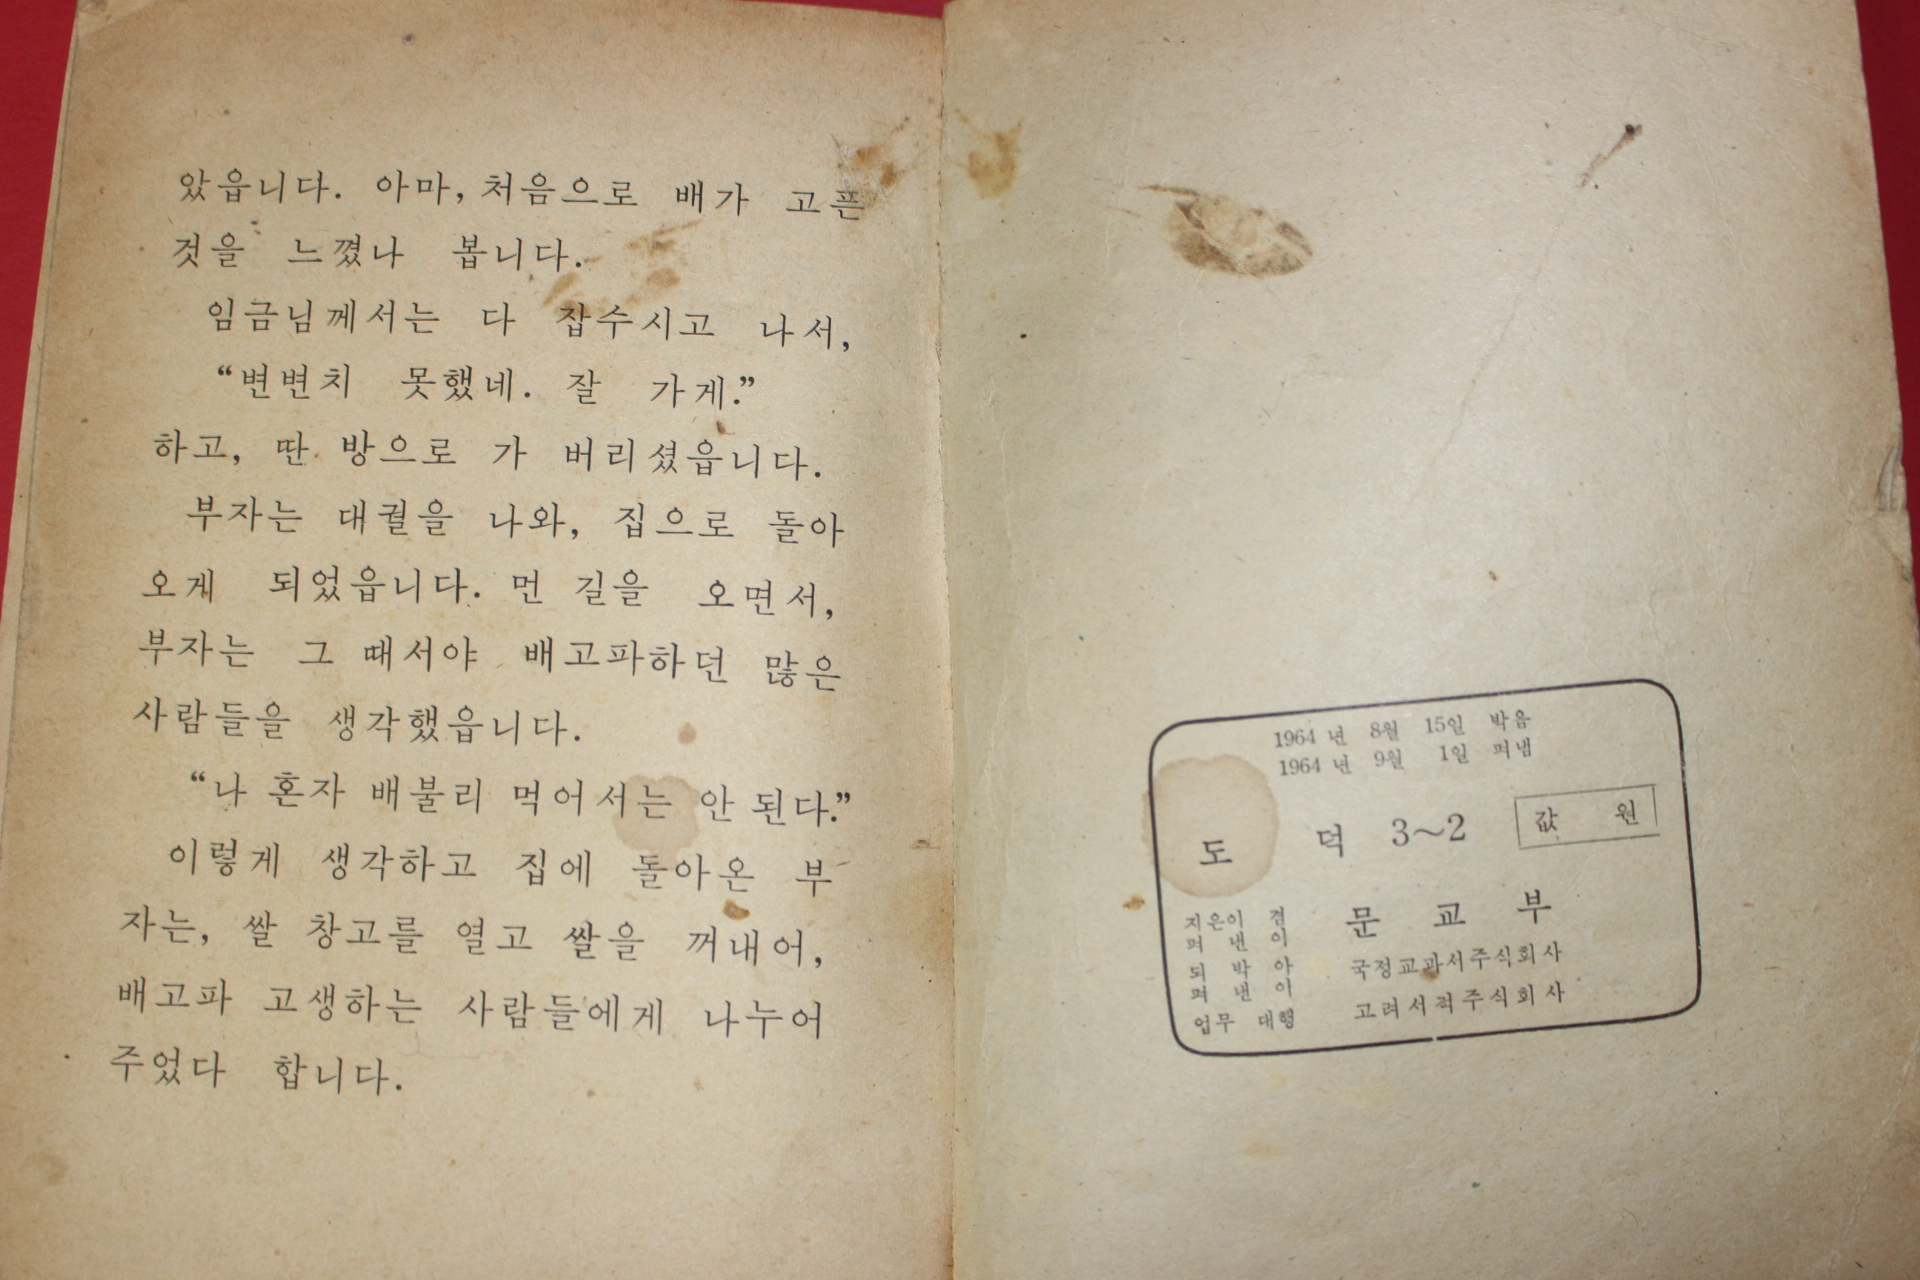 았읍니다. 아마, 처음으로 배가 고픈
것을 느꼈나 봅니다.
임금님께서는 다 잡수시고 나서,
“변변치 못했네. 잘 가게.”
하고, 딴 방으로 가 버리셨읍니다.
부자는 대궐을 나와, 집으로 돌아
오게 되었읍니다. 먼 길을 오면서,
부자는 그 때서야 배고파하던 많은
사람들을 생각했읍니다.
“나 혼자 배불리 먹어서는 안 된다.”
이렇게 생각하고 집에 돌아온 부
자는, 쌀 창고를 열고 쌀을 꺼내어,
배고파 고생하는 사람들에게 나누어
주었다 합니다.
1964 년 8월 15일 박음
1964 년 9월 1일 펴냄
도 덕 3~2 값 원
지은이 겸
펴 낸 이 문 교 부
되 박 아
펴 낸 이 국정교과서주식회사
업무 대행 고려서적주식회사